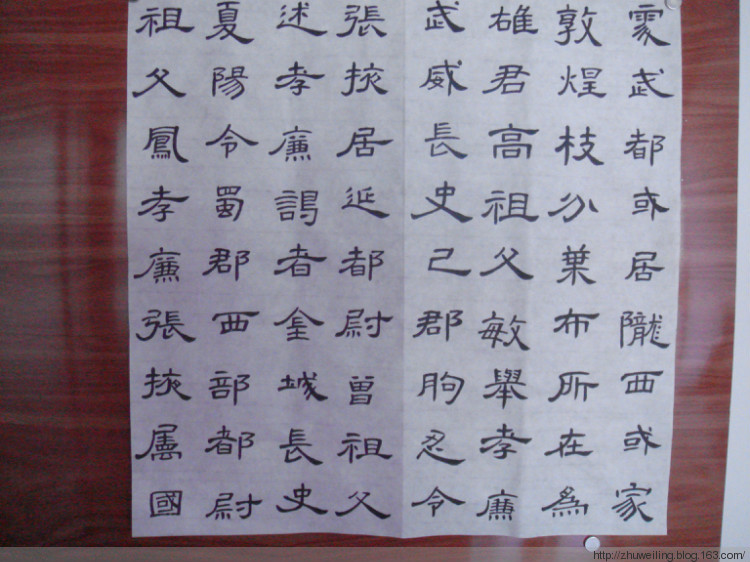 處武都或居隴西或家
敦煌枝分葉布所在為
雄君高祖父敏舉孝廉
武威長史己郡朐忍令
張掖居延都尉曾祖父
述孝廉謁者金城長史
夏陽令蜀郡西部都尉
祖父鳳孝廉張掖屬國
http://zhuweiling.blog.163.com/